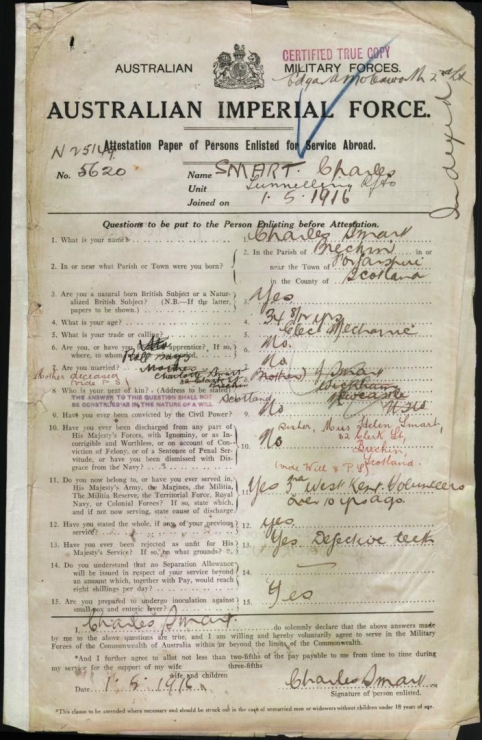 CERTIFIED TRUE COPY
AUSTRALIAN MILITARY FORCES.
AUSTRALIAN IMPERIAL FORCE.
Indexed
Attestation Paper of Persons Enlisted for Service Abroad.
No. 5620
Name SMART. Charles
Unit Tunnelling Rfts
Joined on 1.5.1916
Questions to be put to the Person Enlisting before Attestation.
1. What is your name? Charles Smart
2. In or near what Parish or Town were you born? 2. In the Parish of Brechin in or
near the Town of Forfarshire
in the County of Scotland
3. Are you a natural born British Subject or a Natur-
alized British Subject? (N.B.—If the latter,
papers to be shown.) Yes
4. What is your age? 4.
5. What is your trade or calling? 5. Elec Mechanic
6. Are you, or have you been an Apprentice? If so,
where, to whom 6. No.
7. Are you married? No
Mother deceased
8. Who is your next of kin? (Address to be stated) (Brother) J Smart
Wickham
Newcastle
THE ANSWER TO THIS QUESTION SHALL NOT
BE CONSTRUED AS IN THE NATURE OF A WILL
Scotland
9. Have you ever been convicted by the Civil Power? 9. No
Sister, Miss Helen Smart,
32 Clerk St,
Brechin,
Scotland.
10. Have you ever been discharged from any part of
His Majesty's Forces, with Ignominy, or as In-
corrigible and Worthless, or on account of Con-
viction of Felony, or of a Sentence of Penal Ser-
vitude, or have you been dismissed with Dis-
grace from the Navy? 10. No
11. Do you now belong to, or have you ever served in,
His Majesty's Army, the Marines, the Militia,
The Militia Reserve, the Territorial Force, Royal
Navy, or Colonial Forces? If so, state which,
and if not now serving, state cause of discharge 11. Yes 3rd West Kent Volunteers
over 10 yrs ago.
12. Have you stated the whole, if any, of your previous
service? 12. yes
13. Have you ever been rejected as unfit for His
Majesty's Service? If so, on what grounds? 13. Yes. Defective teeth
14. Do you understand that no Separation Allowance
will be issued in respect of your service beyond
an amount which, together with Pay, would reach
eight shillings per day? 14. —
15. Are you prepared to undergo inoculation against
smallpox and enteric fever? 15. Yes
I, Charles Smart do solemnly declare that the above answers made
by me to the above questions are true, and I am willing and hereby voluntarily agree to serve in the Military
Forces of the Commonwealth of Australia within or beyond the limits of the Commonwealth.
*And I further agree to allot not less than two-fifths of the pay payable to me from time to time during
three-fifths
my service for the support of my wife
wife and children
Date 1.5.1916. Charles Smart
Signature of person enlisted.
*This clause to be amended where necessary and should be struck out in the case of unmarried men or widowers without children under 18 years of age.